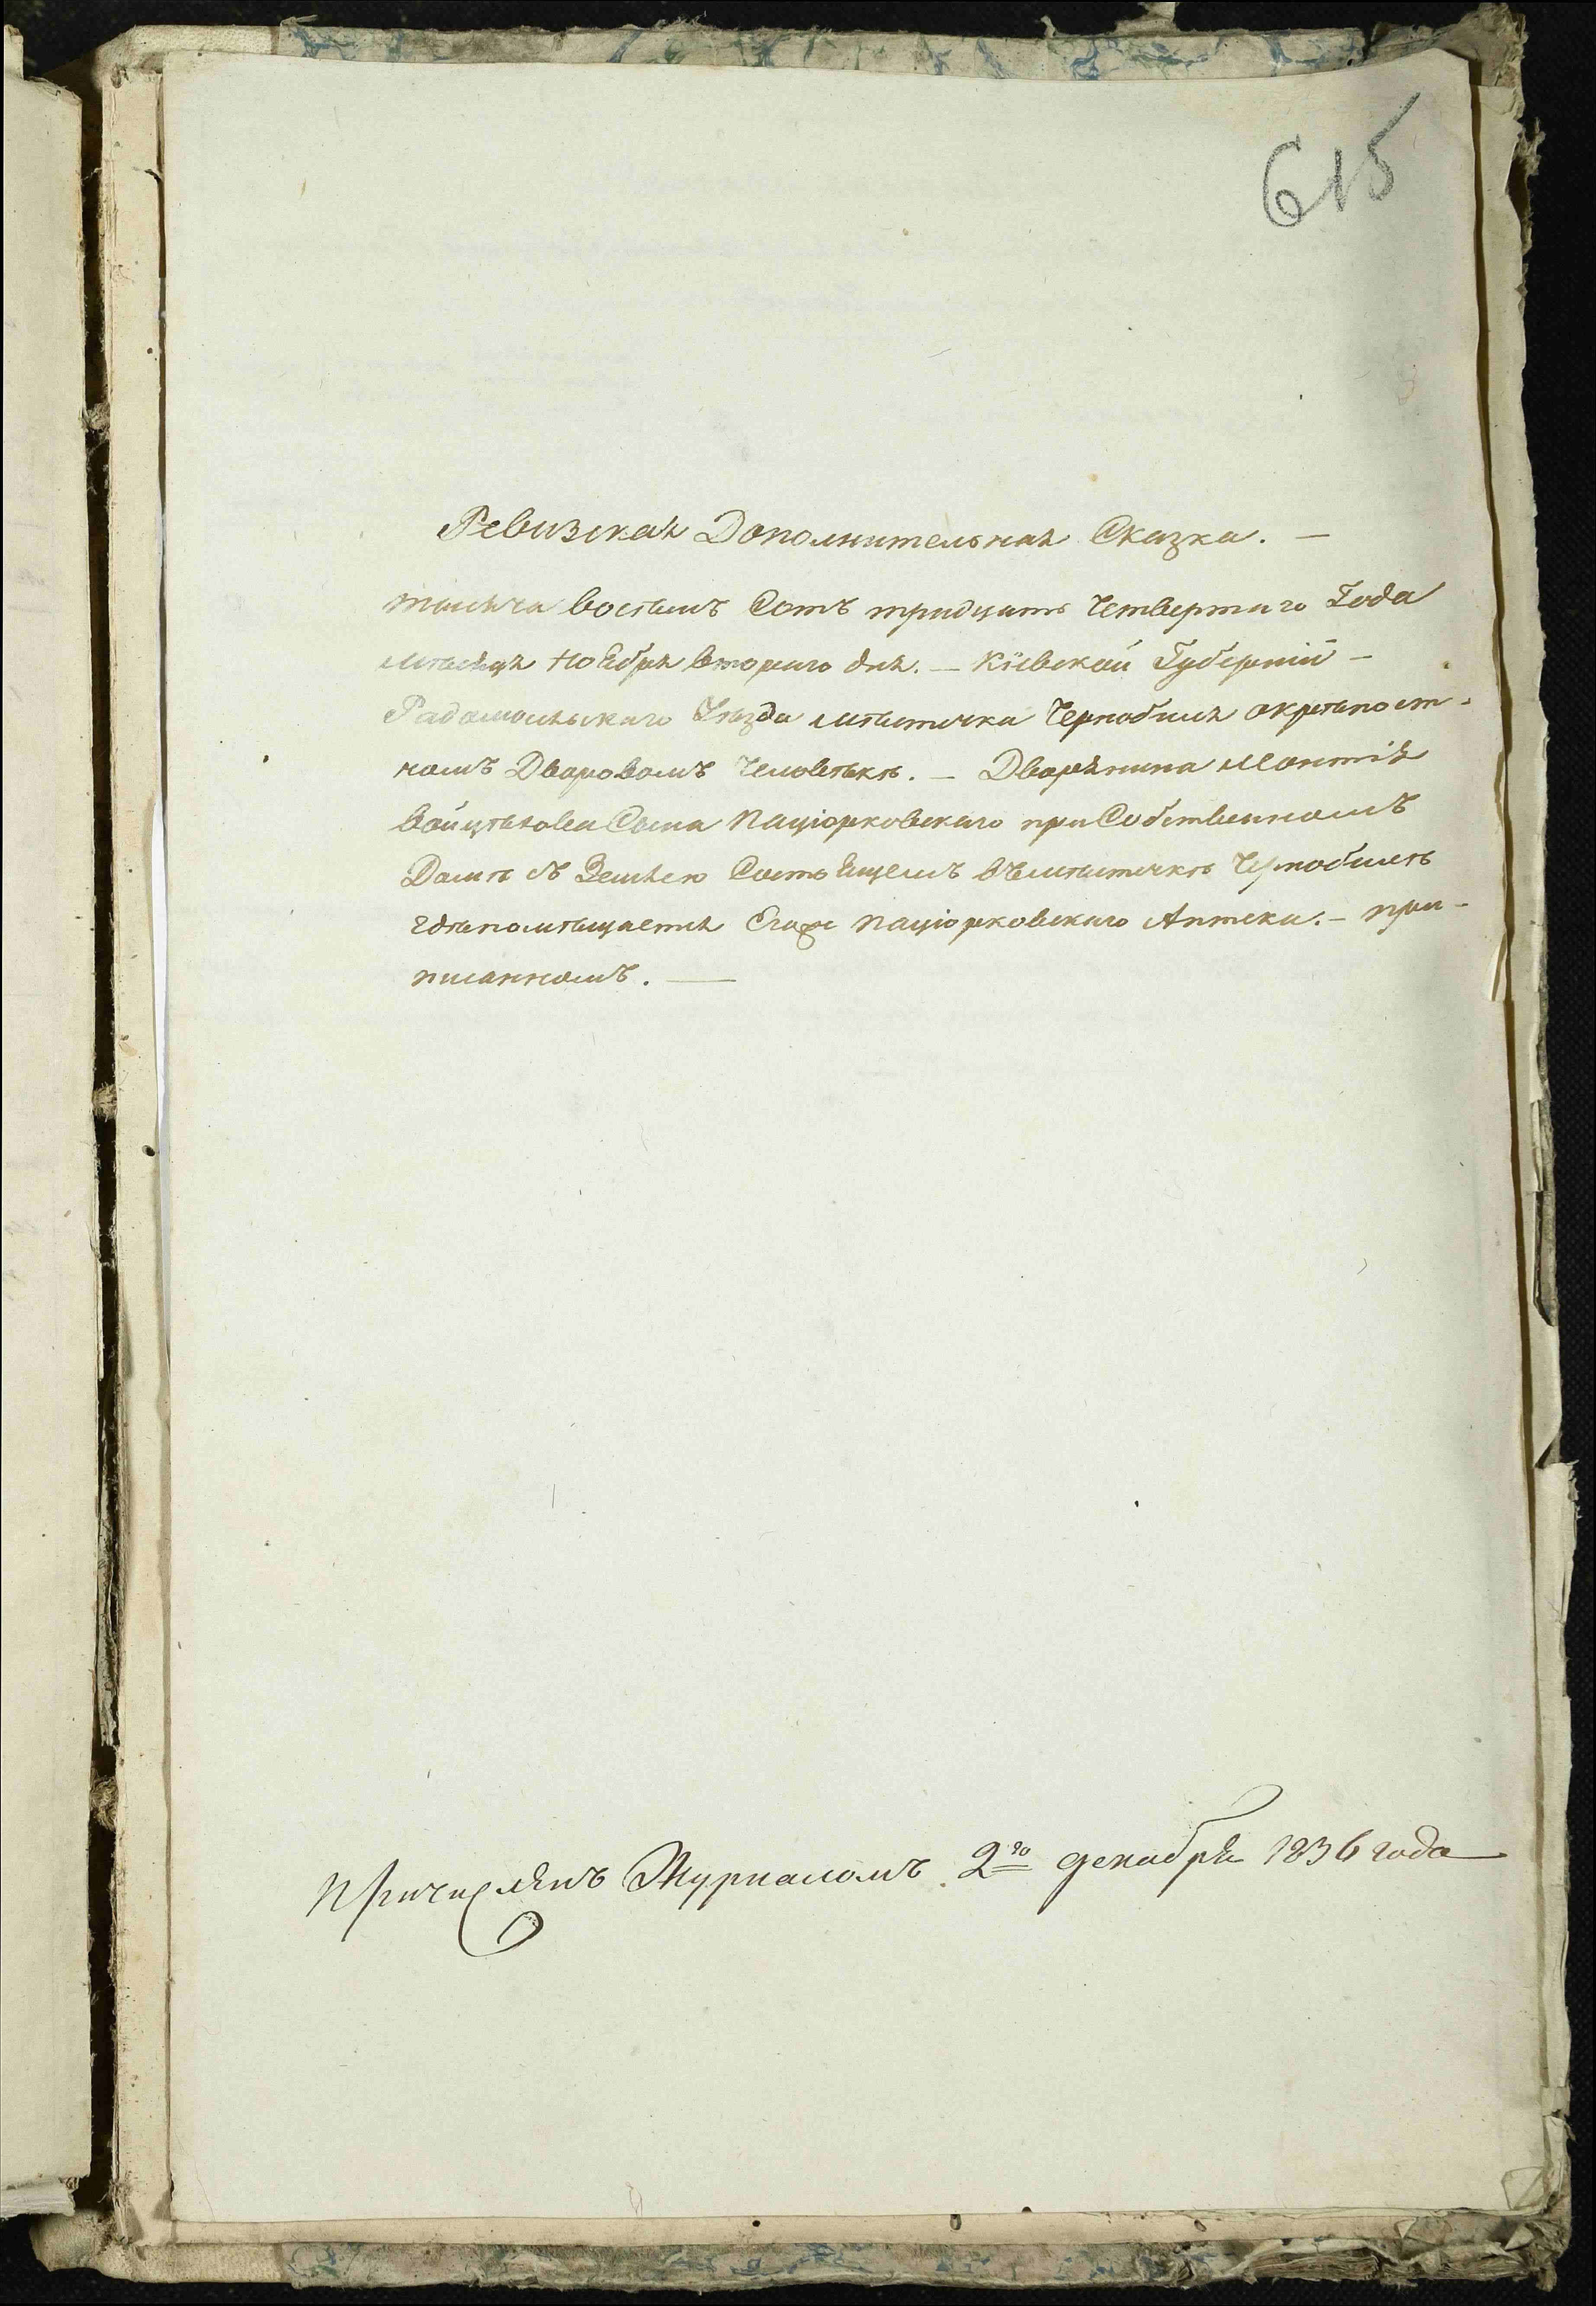 615
Ревизская Дополнительная Сказка. —
тысяча восѣмъ Сотъ тридцать Четвертаго Года
мѣсяца Ноября второго дня. — Кіевской Губерніи —
Радомысльскаго Уѣзда мѣстечка Чернобыля окрѣпост-
номъ Дворовомъ Человѣкѣ. — Дворянина Леонтія
Войцѣхова Сына Паціорковскаго при Собственномъ
Домѣ съ Землею Состоящемъ въмѣстечкѣ Чернобылѣ
гдѣпомѣщается Егоже Паціорковскаго Аптека. — при-
писанномъ. —
Причисленъ Журналомъ 2го декабря 1836 года